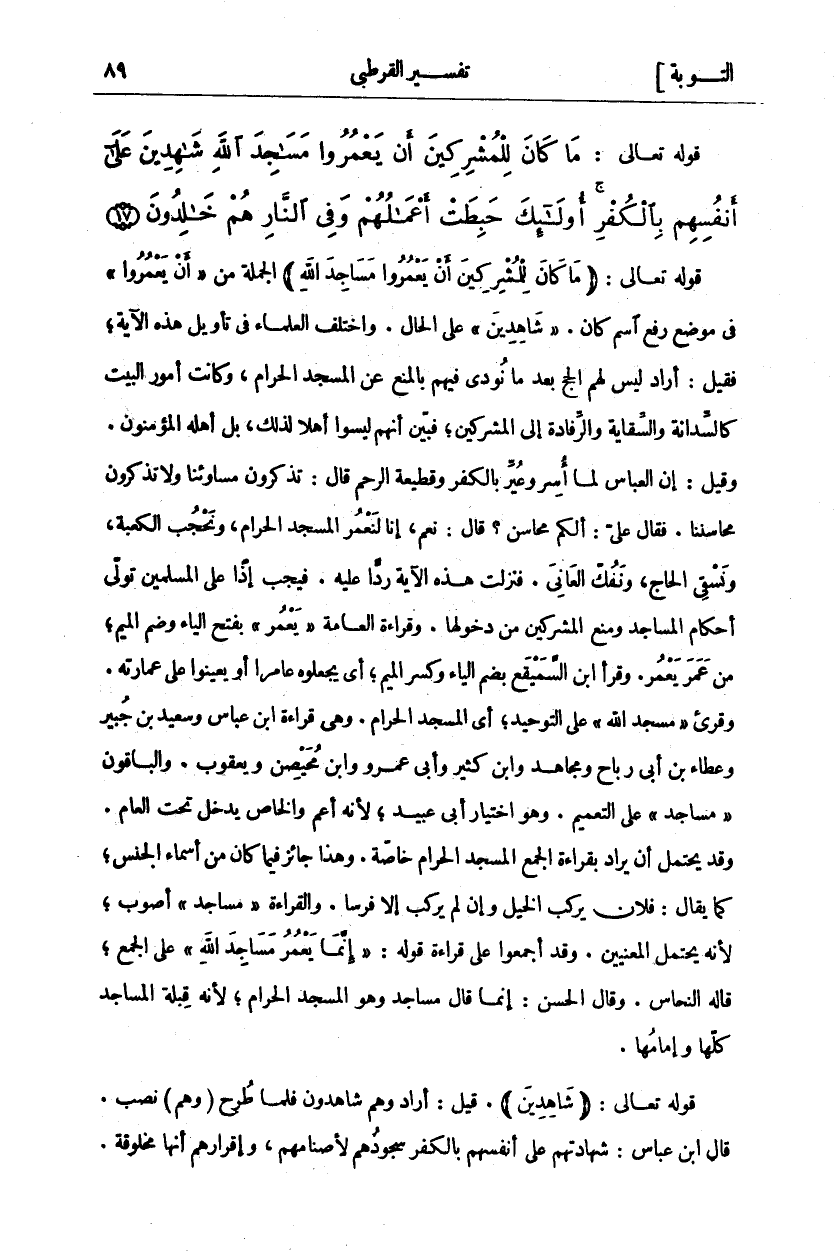 التــوبة ]
تفسير القرطبى
٨٩
قوله تعالى : مَا كَانَ لِلْمُشْرِكِينَ أَن يَعْمُرُوا مَسَـٰجِدَ ٱللَّهِ شَـٰهِدِينَ عَلَىٰٓ
أَنفُسِهِم بِٱلْكُفْرِ ۚ أُولَـٰٓئِكَ حَبِطَتْ أَعْمَـٰلُهُمْ وَفِى ٱلنَّارِ هُمْ خَـٰلِدُونَ ﴿١٧﴾
قوله تعالى : ( مَا كَانَ لِلْمُشْرِكِينَ أَنْ يَعْمُرُوا مَسَاجِدَ اللهِ ) الجملة من « أَنْ يَعْمُرُوا »
فى موضع رفع آسم كان . « شَاهِدِينَ » على الحال . واختلف العلماء فى تأويل هذه الآية؛
فقيل : أراد ليس لهم الحج بعد ما نُودى فيهم بالمنع عن المسجد الحرام ، وكانت أمور البيت
كالسَّدانة والسَّقاية والرَّفادة إلى المشركين؛ فبيّن أنهم ليسوا أهلا لذلك، بل أهله المؤمنون .
وقيل : إن العباس لما أُسِر وعُيِّر بالكفر وقطيعة الرحم قال : تذكرون مساوئنا ولا تذكرون
محاسننا . فقال علىّ : ألكم محاسن ؟ قال : نعم، إنا لَنَعْمُر المسجد الحرام، ونَحْجُب الكعبة،
ونَسْقِى الحاج، ونَفُكّ العَانِىَ . فنزلت هــذه الآية ردًّا عليه . فيجب إذًا على المسلمين تولّى
أحكام المساجد ومنع المشركين من دخولها . وقراءة العامة « يَعْمُر » بفتح الياء وضم الميم؛
من عَمَرَ يَعْمُر. وقرأ ابن السَّمَيْقَع بضم الياء وكسر الميم ؛ أى يجعلوه عامرا أو يعينوا على عمارته .
وقرئ « مسجد الله » على التوحيد؛ أى المسجد الحرام . وهى قراءة ابن عباس وسعيد بن جُبير
وعطاء بن أبى رباح ومجاهد وابن كثير وأبى عمرو وابن مُحَيْصِن ويعقوب . والباقون
« مساجد » على التعميم . وهو اختيار أبى عبيد ؛ لأنه أعم والخاص يدخل تحت العام .
وقد يحتمل أن يراد بقراءة الجمع المسجد الحرام خاصّة . وهذا جائز فيما كان من أسماء الجنس؛
كما يقال : فلان يركب الخيل وإن لم يركب إلا فرسا . والقراءة « مساجد » أصوب ؛
لأنه يحتمل المعنيين . وقد أجمعوا على قراءة قوله : « إِنَّمَا يَعْمُرُ مَسَاجِدَ اللهِ » على الجمع ؛
قاله النحاس . وقال الحسن : إنما قال مساجد وهو المسجد الحرام ؛ لأنه قِبلة المساجد
كلّها وإمامُها .
قوله تعالى : ( شَاهِدِينَ ) . قيل : أراد وهم شاهدون فلما طُرح (وهم) نصب .
قال ابن عباس : شهادتهم على أنفسهم بالكفر سجودُهم لأصنامهم ، وإقرارهم أنها مخلوقة .